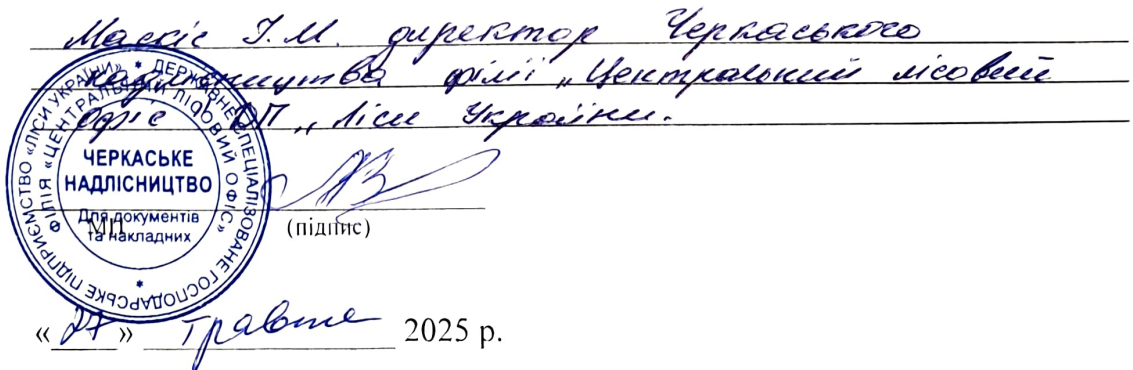 Маскіс І.М. директор Черкаського
надлісництва філії „Центральний лісовий
офіс" ДП „Ліси України.
ДЕРЖАВНЕ СПЕЦІАЛІЗОВАНЕ ГОСПОДАРСЬКЕ ПІДПРИЄМСТВО «ЛІСИ УКРАЇНИ»
ФІЛІЯ «ЦЕНТРАЛЬНИЙ ЛІСОВИЙ ОФІС»
ЧЕРКАСЬКЕ
НАДЛІСНИЦТВО
Для документів
та накладних
МП
(підпис)
«27» травня 2025 р.